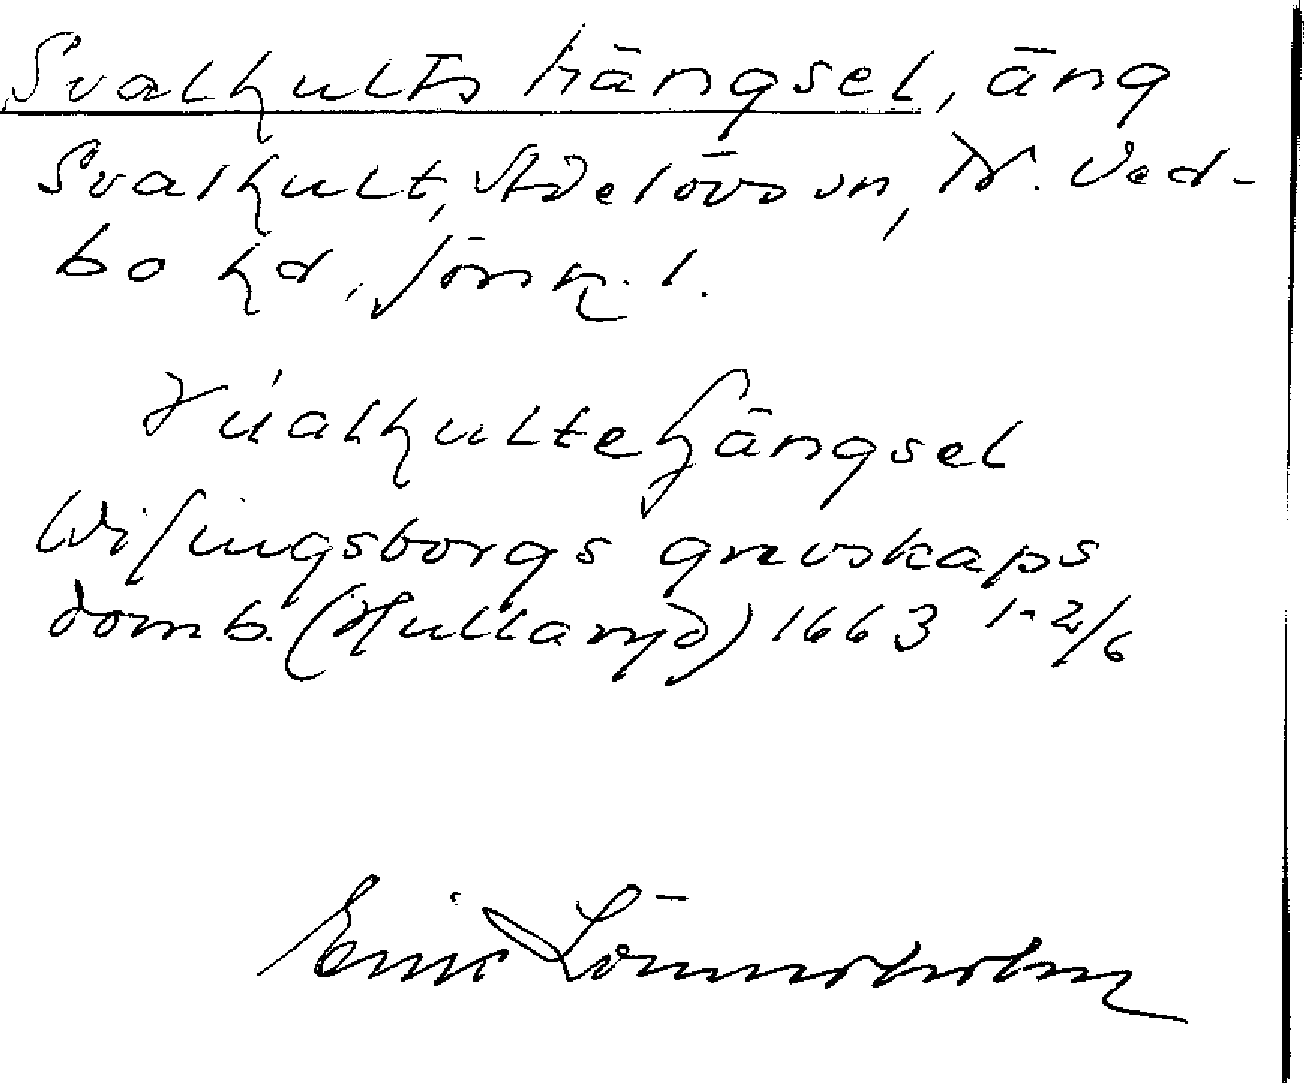 Svalhults hängsel, äng
Svalhult, Adelövs sn, N. Ved-
bo hd, Jönk. l.
Hualhultehängsel
Wisingsborgs grevskaps
domb. (Hullaryd) 1663 1-2/6
Einar Lönnerholm